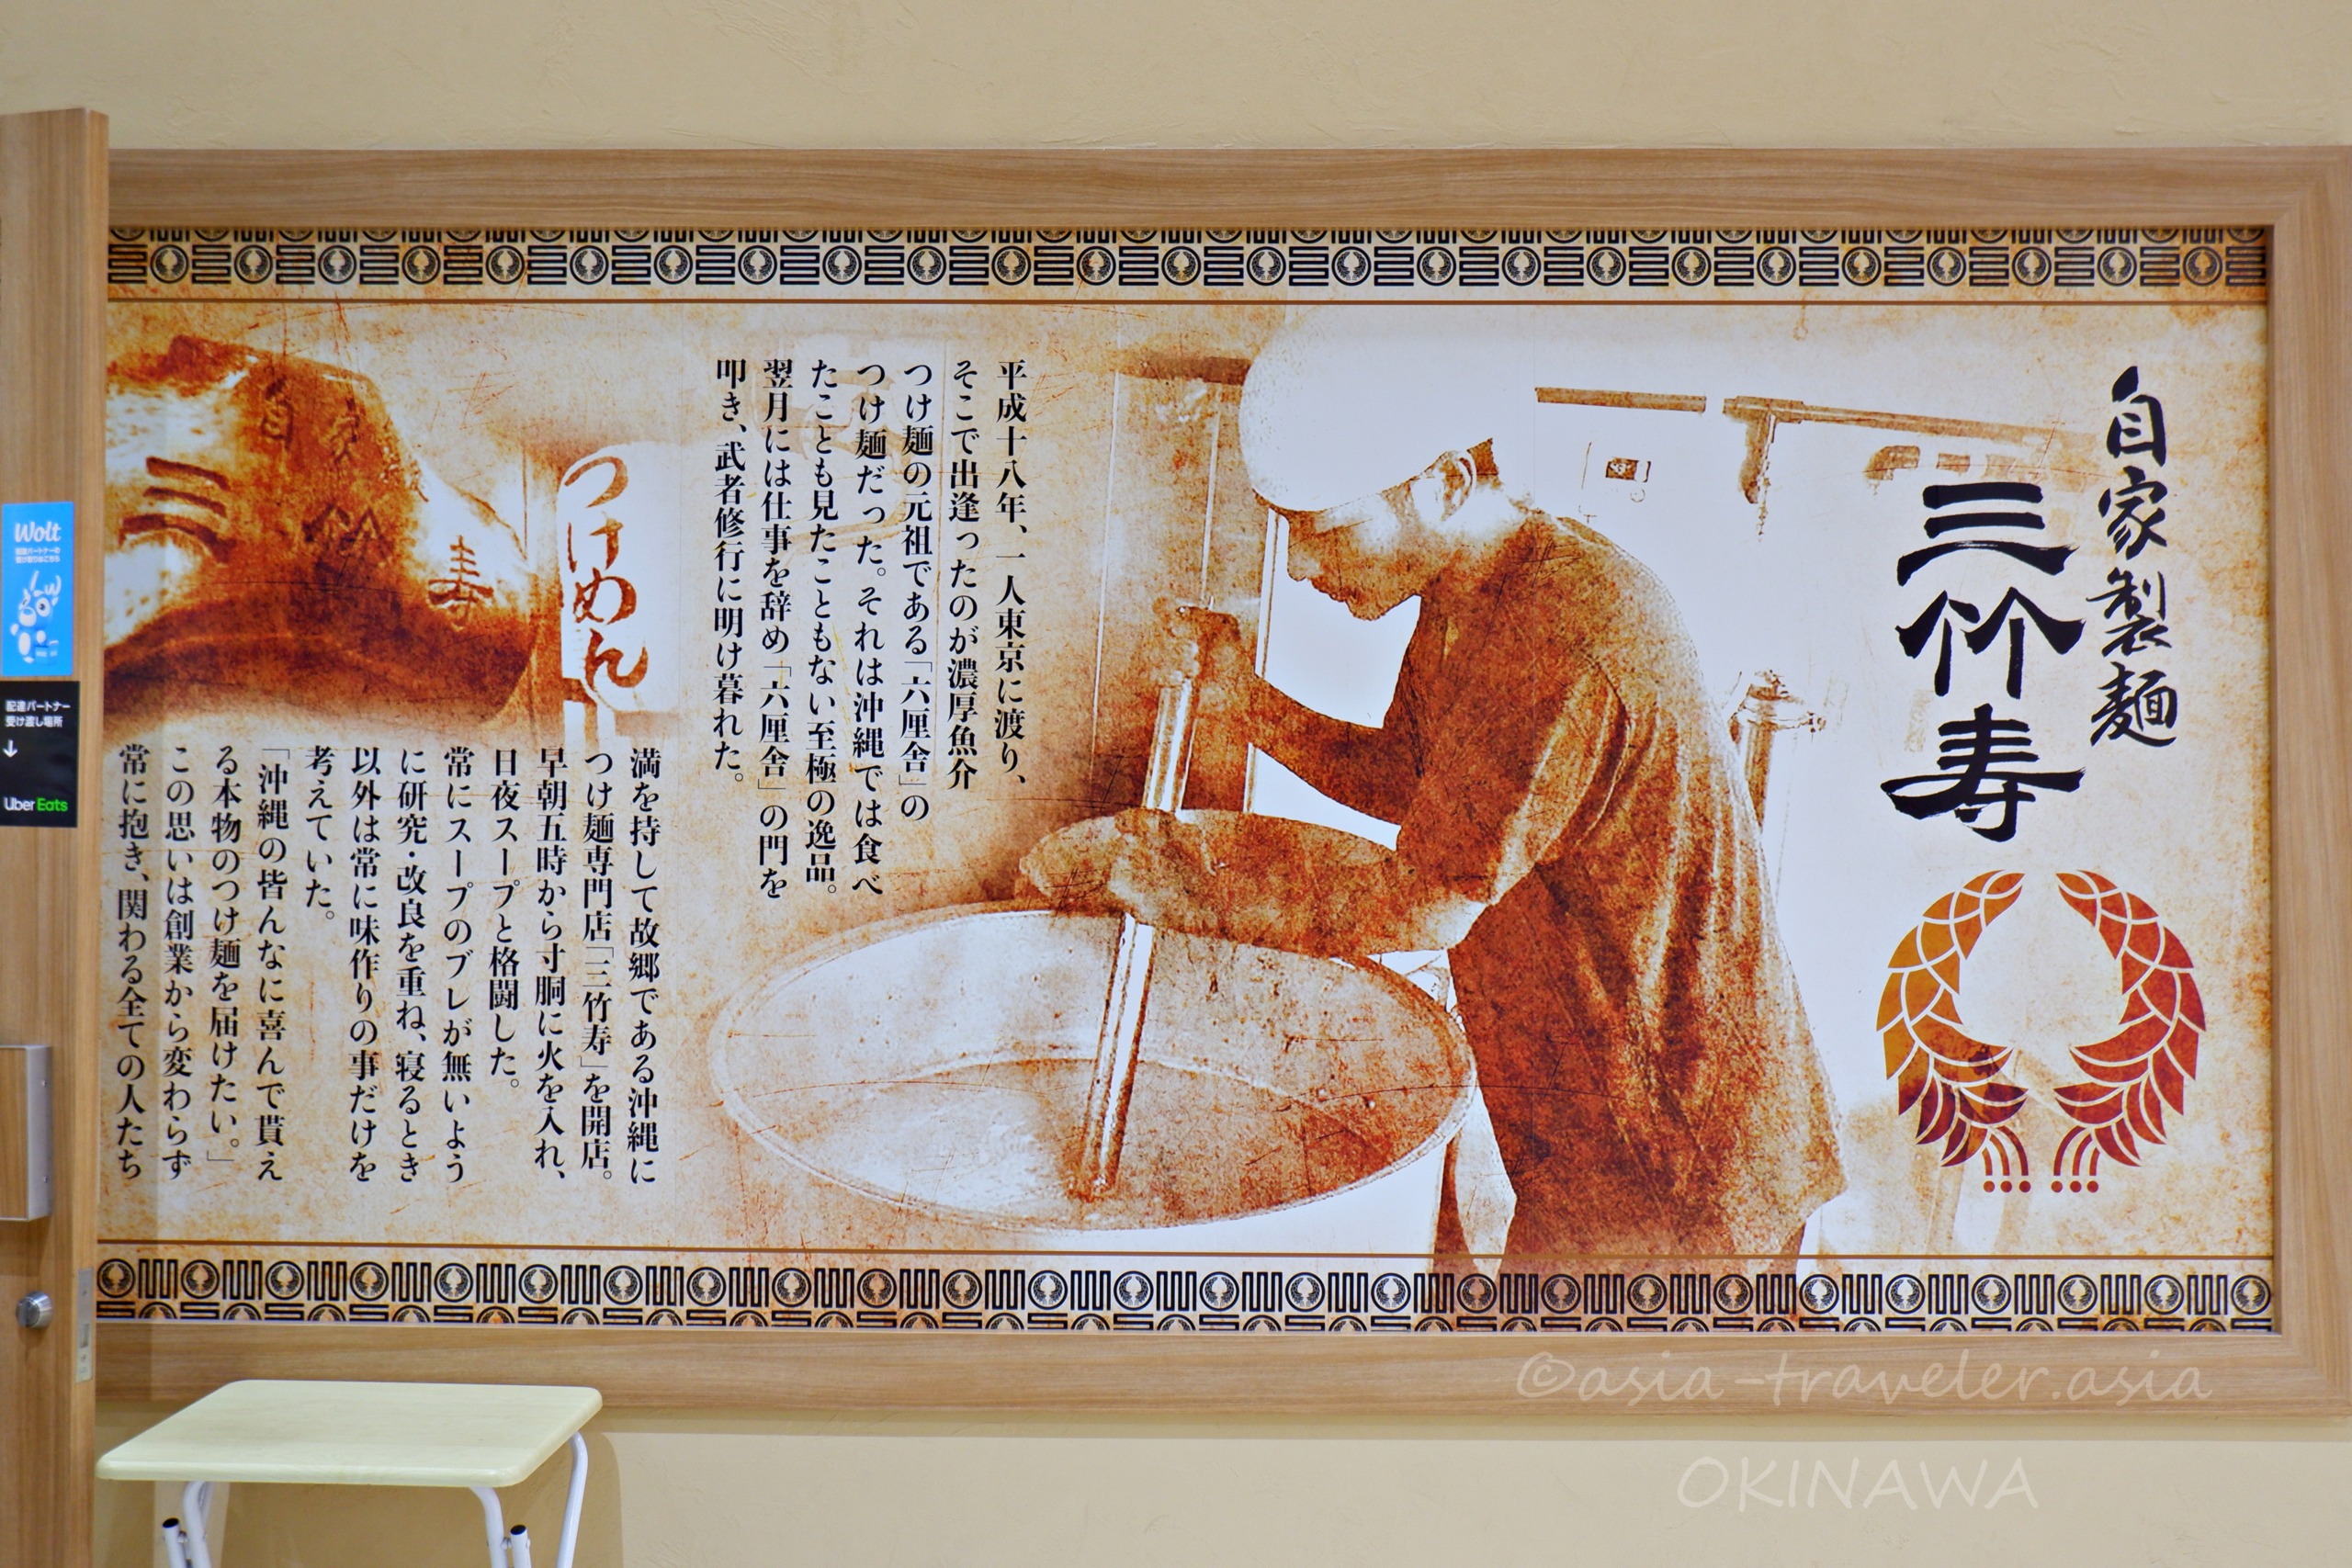 自家製麺
三竹寿
平成十八年、一人東京に渡り、
そこで出逢ったのが濃厚魚介
つけ麺の元祖である「六厘舎」の
つけ麺だった。それは沖縄では食べ
たことも見たこともない至極の逸品。
翌月には仕事を辞め「六厘舎」の門を
叩き、武者修行に明け暮れた。
つけめん
満を持して故郷である沖縄に
つけ麺専門店「三竹寿」を開店。
早朝五時から寸胴に火を入れ、
日夜スープと格闘した。
常にスープのブレが無いよう
に研究・改良を重ね、寝るとき
以外は常に味作りの事だけを
考えていた。
「沖縄の皆んなに喜んで貰え
る本物のつけ麺を届けたい。」
この思いは創業から変わらず
常に抱き、関わる全ての人たち
自家製
三竹寿
Wolt
配達パートナーの
受け取りはこちら
配達パートナー
受け渡し場所
↓
Uber Eats
©asia-traveler.asia
OKINAWA